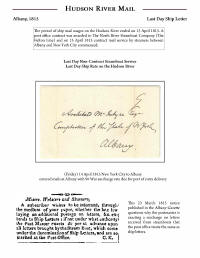 HUDSON RIVER MAIL
Albany, 1815 Last Day Ship Letter
The period of ship mail wages on the Hudson River ended on 15 April 1815. A
post office contract was awarded to The North River Steamboat Company (The
Fulton Line) and on 15 April 1815 contract mail service by steamer between
Albany and New York City commenced.
Last Day Non-Contract Steamboat Service
Last Day Ship Rate on the Hudson River
Archibald McIntyre Esqr
Comptroller of the State of N York
Albany
(Friday) 14 April 1815, New York City to Albany
entered mails at Albany with
due for port of entry delivery
Messrs. Websters and Skinners,
A subscriber wishes to be informed, through
the medium of your paper, whether the law for
laying an additional postage on letters, &c. ex-
tends to Ship Letters; if not under what authority
the Post Master exacts 50 per ct. advance upon
all letters brought by the steam Boat, which come
under the denomination of Ship Letters, and are so
marked at the Post Office. C. K.
This 20 March 1815 notice
published in the Albany Gazette
questions why the postmaster is
exacting a surcharge on letters
received from steamboats that
the post office treats the same as
ship letters.